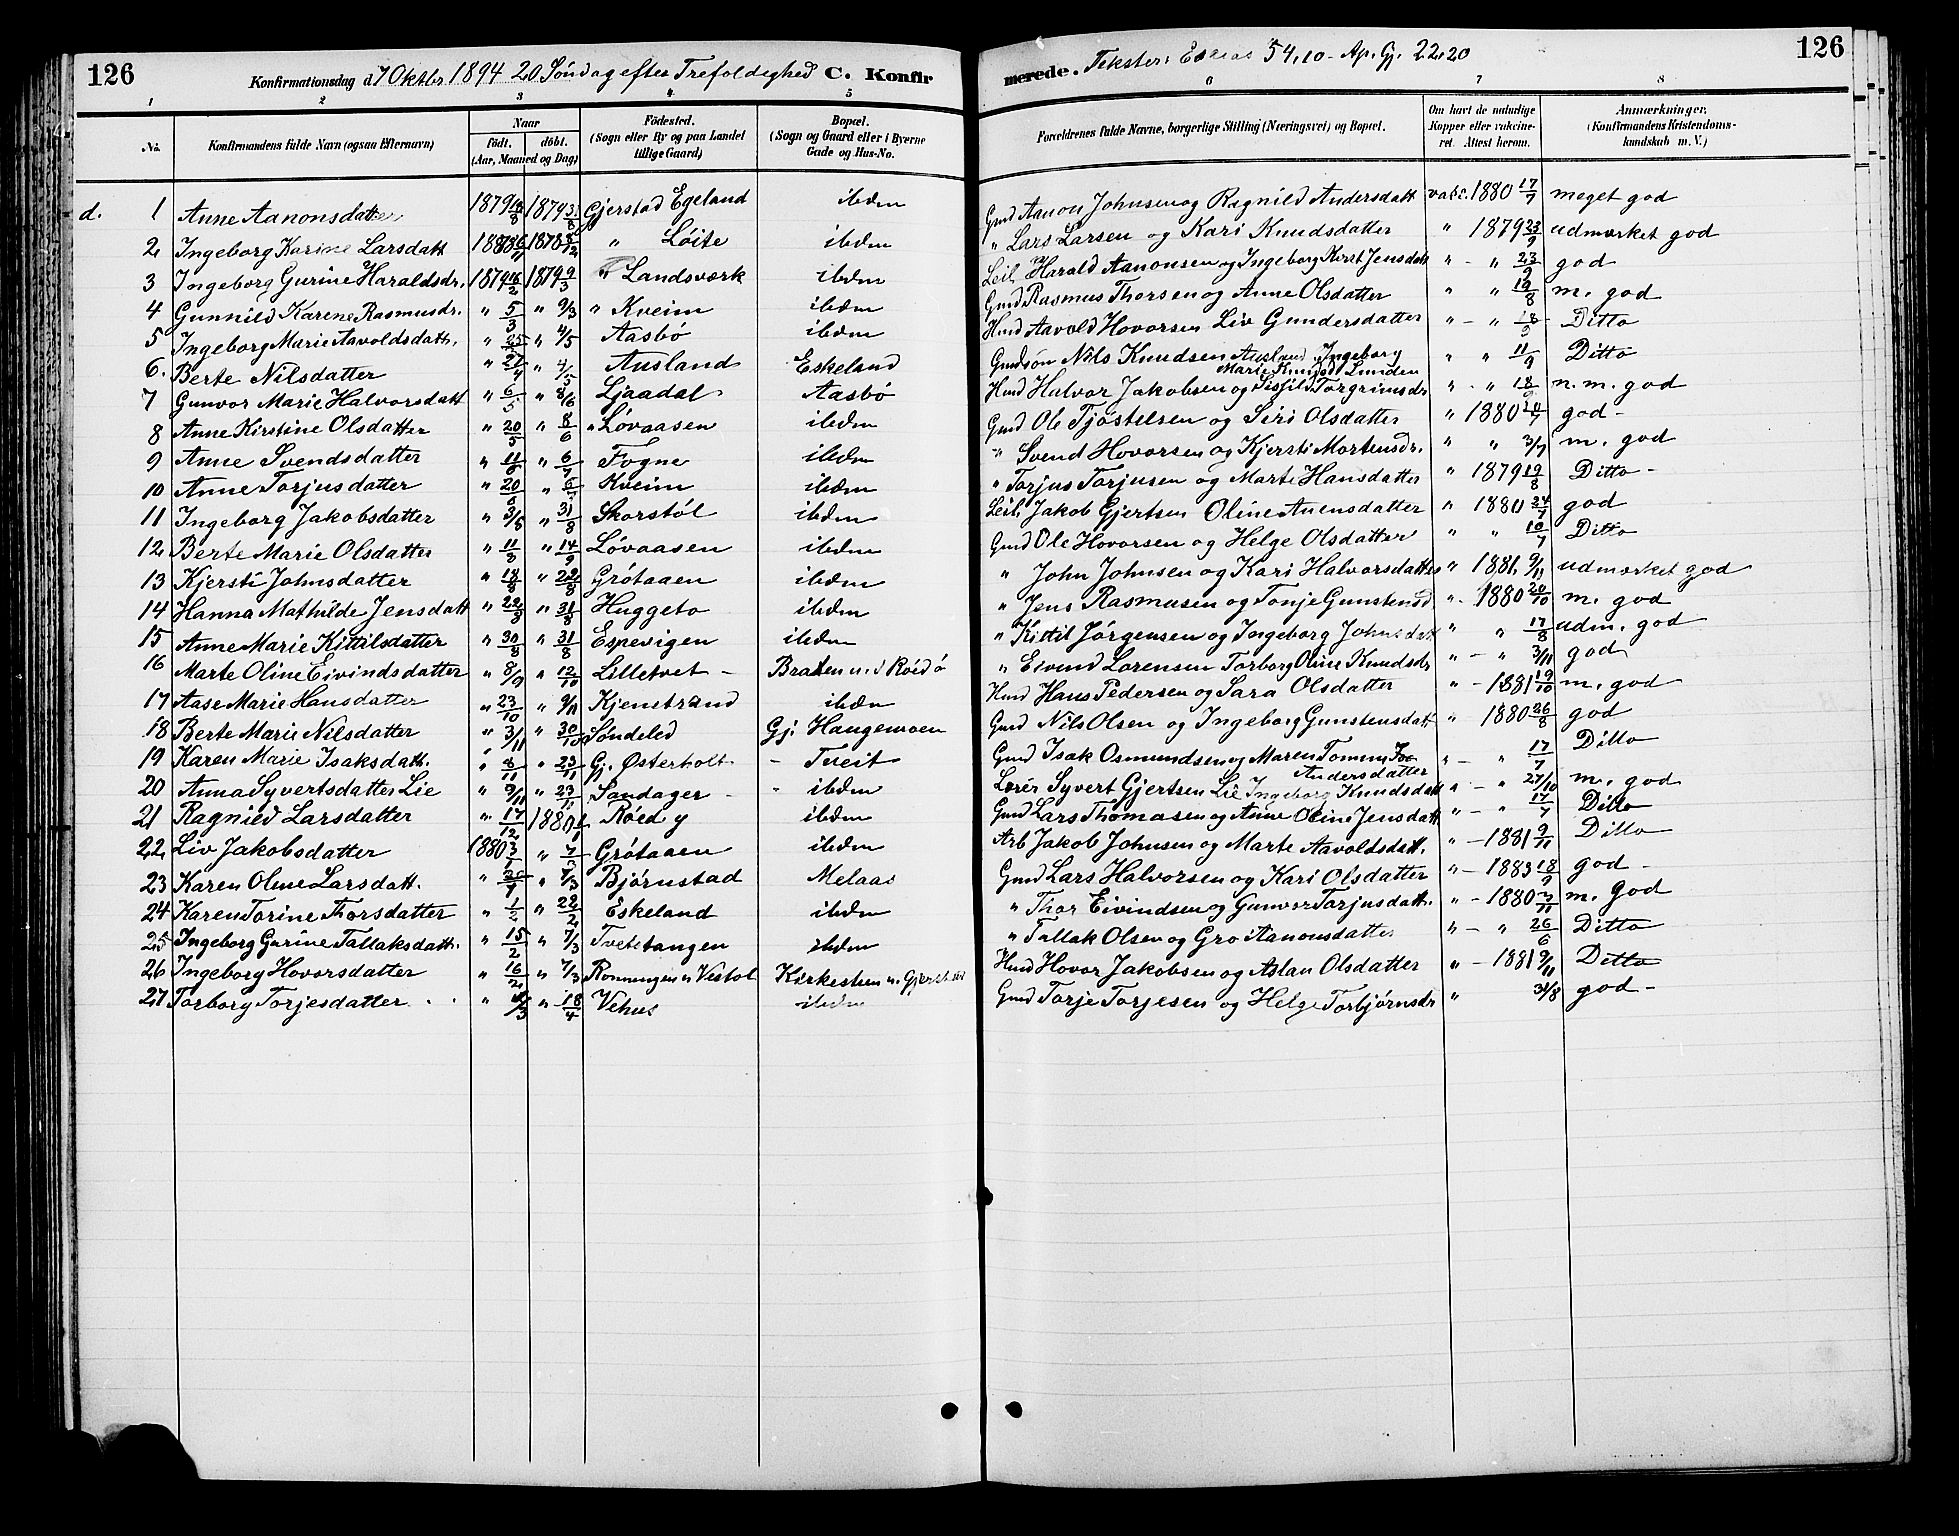 126
Konfirmationsdag d 7 Oktbr 1894 20 Söndag efter Trefoldighed C. Konfir
merede. Tekster: Esaias 54,10 - Ap. Gj. 22.20
126
1 2 3 4 5 6 7 8
No. Konfirmandens fulde Navn (ogsaa Efternavn) Naar födt. döbt. (Aar, Maaned og Dag) Födested. (Sogn eller By og paa Landet tillige Gaard) Bopæl. (Sogn og Gaard eller i Byerne Gade og Hus-No. Forældrenes fulde Navne, borgerlige Stilling (Næringsvei) og Bopæl. Om havt de naturlige Kopper eller vakcineret. Attest herom. Anmærkninger. (Konfirmandens Kristendomskundskab m. V.)
d. 1 Anne Aanonsdatter 1879 1879 31/8 Gjerstad Egeland ibdm Gmd Aanon Johnsen og Ragnild Andersdatt vacc. 1880 17/7 meget god
2 Ingeborg Karine Larsdatt 1878 " Löite ibdm " Lars Larsen og Kari Knudsdatter " 1879 23/9 udmærket god
3 Ingeborg Gurine Haraldsdr. 1879 16/2 1879 9/3 " Landsværk ibdm Leil Harald Aanonsen og Ingeborg Kirst Jensdatt " - " 23/9 god
4 Gunnild Karene Rasmusdr. " 5/3 " 9/3 " Kveim ibdm Gmd Rasmus Thorsen og Anne Olsdatter " " 19/8 m. god
5 Ingeborg Marie Aavoldsdatt. " 25/3 " 4/5 Aasbö ibdm Hmd Aavold Hovorsen Liv Gundersdatter " - " 18/9 Ditto
6. Berte Nilsdatter " 27/4 " 4/5 Ausland Eskeland Gmdsön Nils Knudsen Ausland, Ingeborg Marie Knudsd Lunden " " 11/9 Ditto
7 Gunvor Marie Halvorsdatt " 6/5 " 8/6 Ljaadal Aasbö Hmd Halvor Jakobsen og Sissild Torgrimsdr " - " 18/9 n. m. god
8 Anne Kirstine Olsdatter " 20/5 " 8/6 " Lövaasen ibdm Gmd Ole Tjöstelsen og Siri Olsdatter " 1880 god -
9 Anne Svendsdatter " 11/6 " 6/7 Fogne ibdm " Svend Hovorsen og Kjersti Mortensdr. " " 3/7 m. god
10 Anne Torjusdatter " 20/6 " 6/7 Kveim ibdm " Torjus Torjusen og Marte Hansdatter " 1879 19/8 Ditto -
11 Ingeborg Jakobsdatter " 3/8 " 31/8 Skorstöl ibdm Leil. Jakob Gjertsen Oline Auensdatter " 1880 24/7 god
12 Berte Marie Olsdatter " 11/8 " 14/9 Lövaasen ibdm Gmd Ole Hovorsen og Helge Olsdatter " " 10/7 Ditto
13 Kjersti Johnsdatter " 18/8 " Grötaaen ibdm " John Johnsen og Kari Halvorsdatter " 1881 9/11 udmærket god
14 Hanna Mathilde Jensdatt " " 31/8 Huggeto ibdm " Jens Rasmusen og Tonje Gunstensd " - 1880 20/10 m. god
15 Anne Marie Kittilsdatter " 30/8 " 31/8 Espevigen ibdm " Kittil Jörgensen og Ingeborg Johnsdatt " " 17/8 udm. god
16 Marte Oline Eivindsdatter " 8/9 " 12/10 Lilletvet - Braten u. d Röidö " Eivind Lorensen Torborg Oline Knudsdr " - " 3/11 god
17 Aase Marie Hansdatter " 23/10 " 9/11 Kjenstrand ibdm Hmd Hans Pedersen og Sara Olsdatter " - 1881 19/10 m. god
18 Berte Marie Nilsdatter " 3/11 " 30/10 Söndeled Gj. Haugemoen Gmd Nils Olsen og Ingeborg Gunstensdatt " 1880 26/8 god
19 Karen Marie Isaksdatt. " 8/11 " 23/11 Gj. Österholt - Tveit Gmd Isak Osmundsen og Maren Tomine Andersdatter " - " 17/7 Ditto
20 Anna Syvertsdatter Lie " 9/11 " 23/11 Sandager - " ibdm Lærer Syvert Gjertsen Lie Ingeborg Knudsdatt " - " 27/10 m. god
21 Ragnild Larsdatter " 17/12 1880 Röed y ibdm Gmd Lars Thomasen og Anne Oline Jensdatt " - " 17/7 Ditto
22 Liv Jakobsdatter 1880 3/1 " Grötaaen ibdm Arb Jakob Johnsen og Marte Aavoldsdatt. " - 1881 9/11 Ditto
23 Karen Oline Larsdatt. " 20/1 " 7/3 Björnstad Melaas Gmd Lars Halvorsen og Kari Olsdatter " - 1883 18/9 god -
24 Karen Torine Thorsdatter " 1/2 " 22/2 Eskeland ibdm " Thor Eivindsen og Gunvor Torjusdatt. " - 1880 m. god
25 Ingeborg Gurine Tallaksdatt. " 15/2 " 7/3 Tvetetangen ibdm " Tallak Olsen og Gro Aanonsdatter " - " 26/6 Ditto
26 Ingeborg Hovorsdatter " 16/2 " 7/3 Rönningen u Vestöl Kirkesteen u. Gjerstad Hmd Hovor Jakobsen og Aslau Olsdatter " - 1881 9/11 Ditto
27 Torborg Torjesdatter " " 18/4 Vehus ibdm Gmd Torje Torjesen og Helge Torbjörnsdr " 31/8 god -